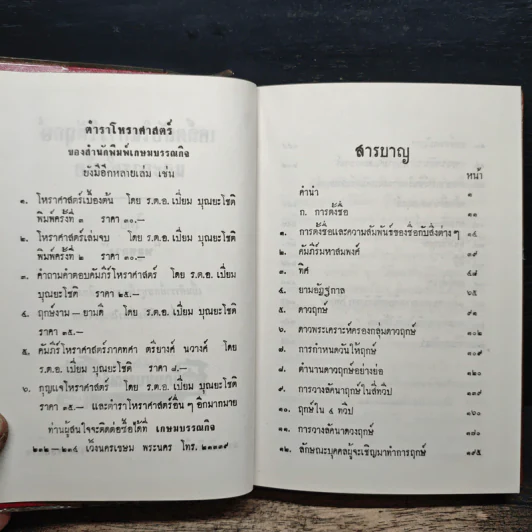 ตำราโหราศาสตร์
ของสำนักพิมพ์เกษมบรรณกิจ
ยังมีอีกหลายเล่ม เช่น
๑. โหราศาสตร์เบื้องต้น โดย ร.ต.อ. เปี่ยม บุณยะโชติ
พิมพ์ครั้งที่ ๓ ราคา ๓๐.—
๒. โหราศาสตร์เล่มจบ โดย ร.ต.อ. เปี่ยม บุณยะโชติ
พิมพ์ครั้งที่ ๒ ราคา ๓๐.—
๓. คำถามคำตอบคัมภีร์โหราศาสตร์ โดย ร.ต.อ. เปี่ยม
บุณยะโชติ ราคา ๒๕.—
๔. ฤกษ์งาม — ยามดี โดย ร.ต.อ. เปี่ยม บุณยะโชติ
ราคา ๓๕.—
๕. คัมภีร์โหราศาสตร์ภาคตศา ตรียางค์ นวางค์ โดย
ร.ต.อ. เปี่ยม บุณยะโชติ ราคา ๘.—
๖. กุญแจโหราศาสตร์ โดย ร.ต.อ. เปี่ยม บุณยะโชติ
ราคา ๓๕.— และตำราโหราศาสตร์อื่น ๆ อีกมากมาย
ท่านผู้สนใจจะติดต่อซื้อได้ที่ เกษมบรรณกิจ
๒๑๒ — ๒๑๔ เวิ้งนครเขษม พระนคร โทร. ๒๑๓๓๙
สารบาญ
หน้า
คำนำ ๑
ก. การตั้งชื่อ ๑๑
๑. การตั้งชื่อและความสัมพันธ์ของชื่อกับสิ่งต่าง ๆ ๑๕
๒. คัมภีร์มหาสมพงศ์ ๑๙
๓. ทิศ ๕๘
๔. ยามอัฏฐกาล ๖๕
๕. ดาวฤกษ์ ๙๑
๖. ดาวพระเคราะห์ครองกลุ่มดาวฤกษ์ ๑๐๒
๗. การกำหนดวันให้ฤกษ์ ๑๐๙
๘. ตำนานดาวฤกษ์อย่างย่อ ๑๒๐
๙. การวางลัคนาฤกษ์ในสี่ทวีป ๑๓๗
๑๐. ฤกษ์ใน ๔ ทวีป ๑๖๐
๑๑. การวางลัคนาดวงฤกษ์ ๑๘๐
๑๒. ลักษณะบุคคลผู้จะเชิญมาทำการฤกษ์ ๑๙๕